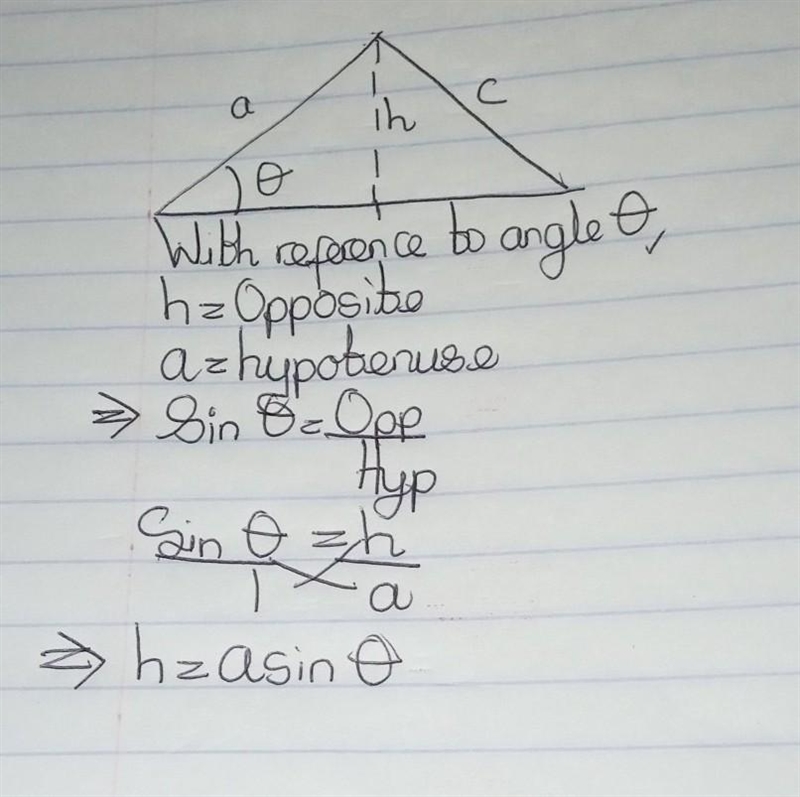 a
c
h
θ
With reference to angle θ,
h = Opposite
a = hypotenuse
⇒ Sin θ = Opp
Hyp
Sin θ = h
1 a
⇒ h = a sin θ